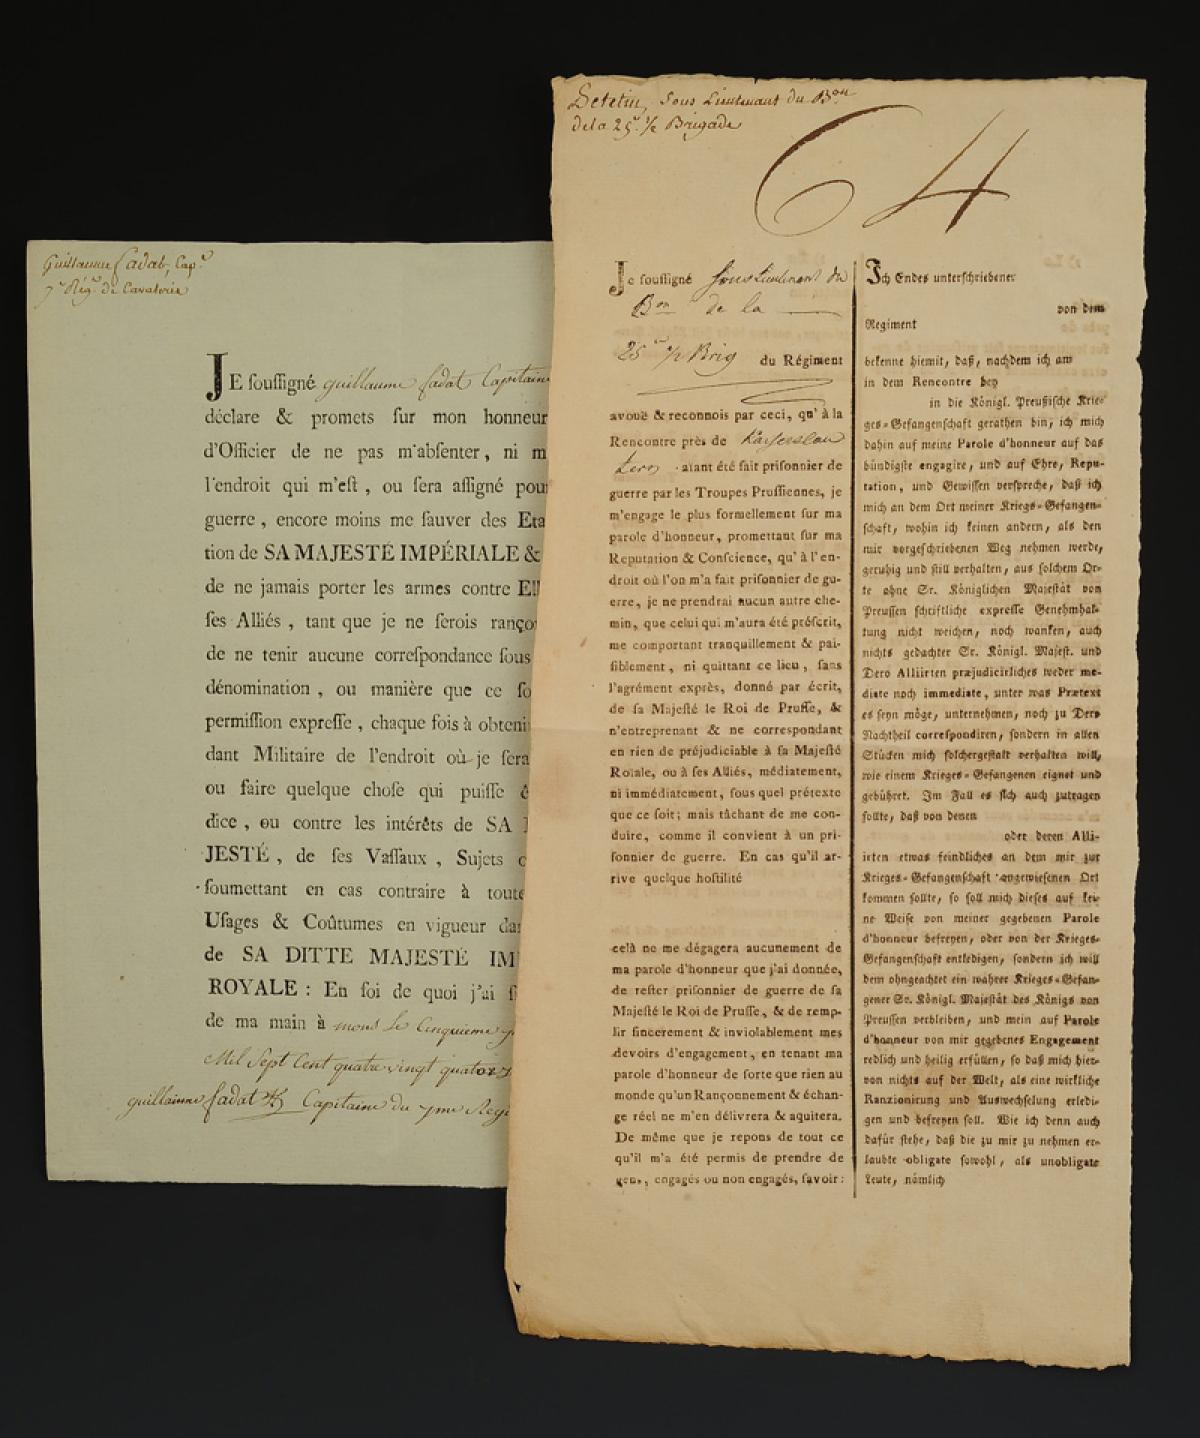 Guillaume fadat, Cap.ⁿ
7ᵉ Régᵗ de Cavalerie
JE souſſigné guillaume fadat Capitaine
déclare & promets ſur mon honneur
d'Officier de ne pas m'abſenter, ni m
l'endroit qui m'eſt, ou ſera aſſigné pour
guerre, encore moins me ſauver des Eta
tion de SA MAJESTÉ IMPÉRIALE &
de ne jamais porter les armes contre Ell
ſes Alliés, tant que je ne ſerois ranço
de ne tenir aucune correſpondance ſous
dénomination, ou manière que ce ſo
permiſſion expreſſe, chaque fois à obteni
dant Militaire de l'endroit où je ſera
ou faire quelque choſe qui puiſſe ê
dice, ou contre les intérêts de SA
JESTÉ, de ſes Vaſſaux, Sujets
ſoumettant en cas contraire à toute
Uſages & Coûtumes en vigueur da
de SA DITTE MAJESTÉ IM
ROYALE : En foi de quoi j'ai ſ
de ma main à mons Le Cinquieme
Mil Sept Cent quatre vingt quatorz
guillaume fadat Capitaine du 7me Regi
Sous Lieutenant du Bᵒⁿ
de la 25ᵉ ½ Brigade
64
Je ſouſſigné Sous Lieutenant du
Bᵒⁿ de la
25ᵉ ½ Brig du Régiment
avouë & reconnois par ceci, qu'à la
Rencontre près de Kayserslau
tern aïant été fait priſonnier de
guerre par les Troupes Pruſſiennes, je
m'engage le plus formellement ſur ma
parole d'honneur, promettant ſur ma
Reputation & Conſcience, qu'à l'en-
droit où l'on m'a fait priſonnier de gu-
erre, je ne prendrai aucun autre che-
min, que celui qui m'aura été préſcrit,
me comportant tranquillement & pai-
ſiblement, ni quittant ce lieu, ſans
l'agrément exprès, donné par écrit,
de ſa Majeſté le Roi de Pruſſe, &
n'entreprenant & ne correſpondant
en rien de préjudiciable à ſa Majeſté
Roïale, ou à ſes Alliés, médiatement,
ni immédiatement, ſous quel prétexte
que ce ſoit; mais tâchant de me con-
duire, comme il convient à un pri-
ſonnier de guerre. En cas qu'il ar-
rive quelque hoſtilité
celà ne me dégagera aucunement de
ma parole d'honneur que j'ai donnée,
de reſter priſonnier de guerre de ſa
Majeſté le Roi de Pruſſe, & de remp-
lir ſincerement & inviolablement mes
devoirs d'engagement, en tenant ma
parole d'honneur de ſorte que rien au
monde qu'un Rançonnement & échan-
ge réel ne m'en délivrera & aquitera.
De même que je repons de tout ce
qu'il m'a été permis de prendre de
gens, engagés ou non engagés, ſavoir:
Ich Endes unterſchriebener
von dem
Regiment
bekenne hiemit, daß, nachdem ich am
in dem Rencontre bey
in die Königl. Preußiſche Krie-
ges-Gefangenſchaft gerathen bin, ich mich
dahin auf meine Parole d'honneur auf das
bündigſte engagire, und auf Ehre, Repu-
tation, und Gewiſſen verſpreche, daß ich
mich an dem Ort meiner Kriegs-Gefangen-
ſchaft, wohin ich keinen andern, als den
mir vorgeſchriebenen Weg nehmen werde,
geruhig und ſtill verhalten, aus ſolchem Or-
te ohne Sr. Königlichen Majeſtät von
Preuſſen ſchriftliche expreſſe Genehmhal-
tung nicht weichen, noch wanken, auch
nichts gedachter Sr. Königl. Majeſt. und
Dero Alliirten præjudicirliches weder me-
diate noch immediate, unter was Prætext
es ſeyn möge, unternehmen, noch zu Dero
Nachtheil correſpondiren, ſondern in allen
Stücken mich ſolchergeſtalt verhalten will,
wie einem Krieges-Gefangenen eignet und
gebühret. Im Fall es ſich auch zutragen
ſollte, daß von denen
oder deren Alli-
irten etwas feindliches an dem mir zur
Krieges-Gefangenſchaft angewieſenen Ort
kommen ſollte, ſo ſoll mich dieſes auf kei-
ne Weiſe von meiner gegebenen Parole
d'honneur befreyen, oder von der Krieges-
Gefangenſchaft entledigen, ſondern ich will
dem ohngeachtet ein wahrer Krieges-Gefan-
gener Sr. Königl. Majeſtät des Königs von
Preuſſen verbleiben, und mein auf Parole
d'honneur von mir gegebenes Engagement
redlich und heilig erfüllen, ſo daß mich hier-
von nichts auf der Welt, als eine wirkliche
Ranzionirung und Auswechſelung erledi-
gen und befreyen ſoll. Wie ich denn auch
dafür ſtehe, daß die zu mir zu nehmen er-
laubte obligate ſowohl, als unobligate
Leute, nämlich